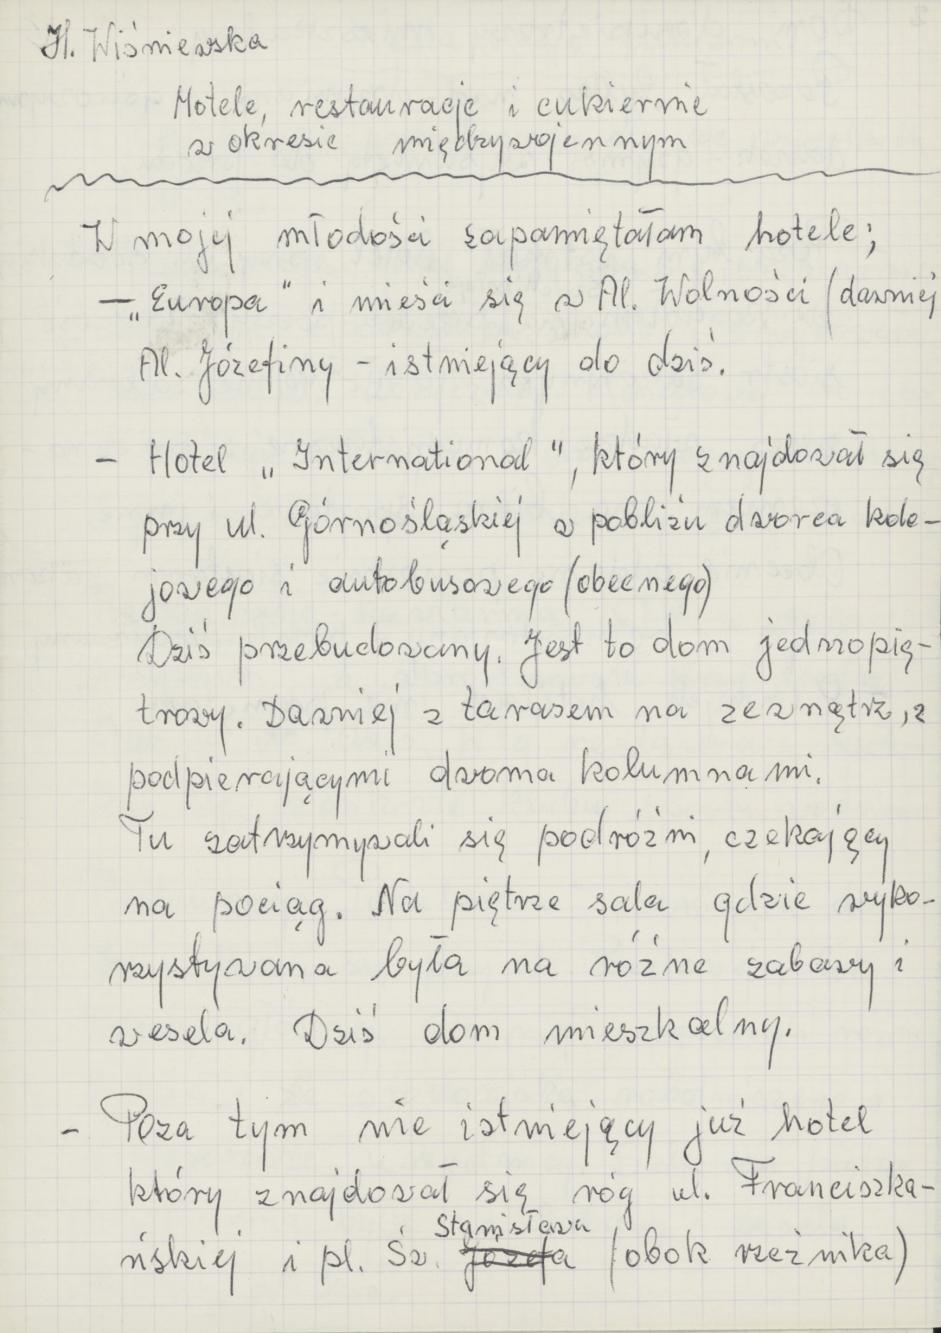 H. Wiśniewska
Hotele, restauracje i cukiernie
w okresie międzywojennym
W mojej młodości zapamiętałam hotele;
— „Europa" i mieści się w Al. Wolności (dawniej
Al. Józefiny - istniejący do dziś.
- Hotel „International", który znajdował się
przy ul. Górnośląskiej w pobliżu dworca kole-
jowego i autobusowego (obecnego)
Dziś przebudowany. Jest to dom jednopię-
trowy. Dawniej z tarasem na zewnątrz, z
podpierającymi dwoma kolumnami.
Tu zatrzymywali się podróżni, czekający
na pociąg. Na piętrze sala gdzie wyko-
rzystywana była na różne zabawy i
wesela. Dziś dom mieszkalny.
- Poza tym nie istniejący już hotel
który znajdował się róg ul. Franciszka-
Stanisława
ńskiej i pl. Św. Józefa (obok rzeźnika)